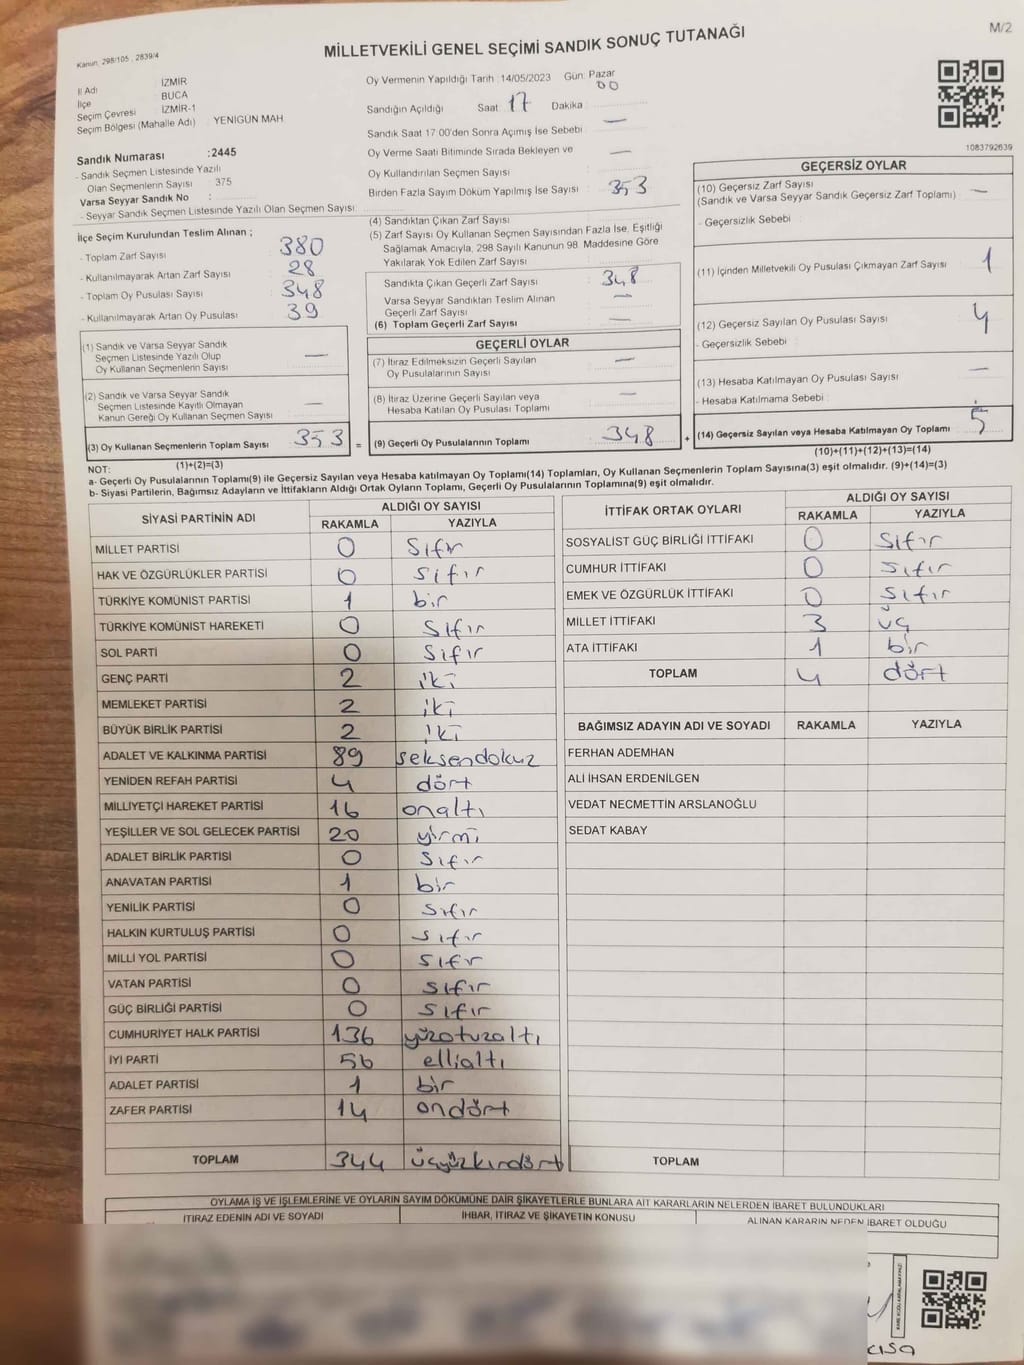 M/2
Kanun, 298/105 , 2839/4
MİLLETVEKİLİ GENEL SEÇİMİ SANDIK SONUÇ TUTANAĞI
İl Adı İZMİR
İlçe BUCA
Seçim Çevresi İZMİR-1
Seçim Bölgesi (Mahalle Adı) YENİGÜN MAH
Sandık Numarası :2445
- Sandık Seçmen Listesinde Yazılı
Olan Seçmenlerin Sayısı 375
Varsa Seyyar Sandık No :
- Seyyar Sandık Seçmen Listesinde Yazılı Olan Seçmen Sayısı:
Oy Vermenin Yapıldığı Tarih :14/05/2023 Gün: Pazar
Sandığın Açıldığı Saat: 17 Dakika: 00
Sandık Saat 17 00'den Sonra Açımış İse Sebebi : —
Oy Verme Saati Bitiminde Sırada Bekleyen ve
Oy Kullandırılan Seçmen Sayısı : —
Birden Fazla Sayım Döküm Yapılmış İse Sayısı :
1083792639
İlçe Seçim Kurulundan Teslim Alınan ;
- Toplam Zarf Sayısı : 380
- Kullanılmayarak Artan Zarf Sayısı : 28
- Toplam Oy Pusulası Sayısı : 348
- Kullanılmayarak Artan Oy Pusulası : 39
(1) Sandık ve Varsa Seyyar Sandık
Seçmen Listesinde Yazılı Olup
Oy Kullanan Seçmenlerin Sayısı : —
(2) Sandık ve Varsa Seyyar Sandık
Seçmen Listesinde Kayıtlı Olmayan
Kanun Gereği Oy Kullanan Seçmen Sayısı : —
(3) Oy Kullanan Seçmenlerin Toplam Sayısı : 353 =
(1)+(2)=(3)
(4) Sandıktan Çıkan Zarf Sayısı : 353
(5) Zarf Sayısı Oy Kullanan Seçmen Sayısından Fazla İse, Eşitliği
Sağlamak Amacıyla, 298 Sayılı Kanunun 98. Maddesine Göre
Yakılarak Yok Edilen Zarf Sayısı :
Sandıkta Çıkan Geçerli Zarf Sayısı : 348
Varsa Seyyar Sandıktan Teslim Alınan
Geçerli Zarf Sayısı : —
(6) Toplam Geçerli Zarf Sayısı : —
GEÇERLİ OYLAR
(7) İtiraz Edilmeksizin Geçerli Sayılan
Oy Pusulalarının Sayısı : —
(8) İtiraz Üzerine Geçerli Sayılan veya
Hesaba Katılan Oy Pusulası Toplamı : —
(9) Geçerli Oy Pusulalarının Toplamı : 348 +
GEÇERSİZ OYLAR
(10) Geçersiz Zarf Sayısı : —
(Sandık ve Varsa Seyyar Sandık Geçersiz Zarf Toplamı)
- Geçersizlik Sebebi :
(11) İçinden Milletvekili Oy Pusulası Çıkmayan Zarf Sayısı : 1
(12) Geçersiz Sayılan Oy Pusulası Sayısı : 4
- Geçersizlik Sebebi :
(13) Hesaba Katılmayan Oy Pusulası Sayısı : —
- Hesaba Katılmama Sebebi :
(14) Geçersiz Sayılan veya Hesaba Katılmayan Oy Toplamı : 5
(10)+(11)+(12)+(13)=(14)
NOT:
a- Geçerli Oy Pusulalarının Toplamı(9) ile Geçersiz Sayılan veya Hesaba katılmayan Oy Toplamı(14) Toplamları, Oy Kullanan Seçmenlerin Toplam Sayısına(3) eşit olmalıdır. (9)+(14)=(3)
b- Siyasi Partilerin, Bağımsız Adayların ve İttifakların Aldığı Ortak Oyların Toplamı, Geçerli Oy Pusulalarının Toplamına(9) eşit olmalıdır.
SİYASİ PARTİNİN ADI ALDIĞI OY SAYISI
RAKAMLA YAZIYLA
MİLLET PARTİSİ 0 Sıfır
HAK VE ÖZGÜRLÜKLER PARTİSİ 0 Sıfır
TÜRKİYE KOMÜNİST PARTİSİ 1 bir
TÜRKİYE KOMÜNİST HAREKETİ 0 Sıfır
SOL PARTİ 0 Sıfır
GENÇ PARTİ 2 iki
MEMLEKET PARTİSİ 2 iki
BÜYÜK BİRLİK PARTİSİ 2 iki
ADALET VE KALKINMA PARTİSİ 89 seksendokuz
YENİDEN REFAH PARTİSİ 4 dört
MİLLİYETÇİ HAREKET PARTİSİ 16 onaltı
YEŞİLLER VE SOL GELECEK PARTİSİ 20 yirmi
ADALET BİRLİK PARTİSİ 0 Sıfır
ANAVATAN PARTİSİ 1 bir
YENİLİK PARTİSİ 0 Sıfır
HALKIN KURTULUŞ PARTİSİ 0 Sıfır
MİLLİ YOL PARTİSİ 0 Sıfır
VATAN PARTİSİ 0 Sıfır
GÜÇ BİRLİĞİ PARTİSİ 0 Sıfır
CUMHURİYET HALK PARTİSİ 136 yüzotuzaltı
İYİ PARTİ 56 ellialtı
ADALET PARTİSİ 1 bir
ZAFER PARTİSİ 14 ondört
TOPLAM 344 üçyüzkırdört
İTTİFAK ORTAK OYLARI ALDIĞI OY SAYISI
RAKAMLA YAZIYLA
SOSYALİST GÜÇ BİRLİĞİ İTTİFAKI 0 Sıfır
CUMHUR İTTİFAKI 0 Sıfır
EMEK VE ÖZGÜRLÜK İTTİFAKI 0 Sıfır
MİLLET İTTİFAKI 3 üç
ATA İTTİFAKI 1 bir
TOPLAM 4 dört
BAĞIMSIZ ADAYIN ADI VE SOYADI RAKAMLA YAZIYLA
FERHAN ADEMHAN
ALİ İHSAN ERDENİLGEN
VEDAT NECMETTİN ARSLANOĞLU
SEDAT KABAY
TOPLAM
OYLAMA İŞ VE İŞLEMLERİNE VE OYLARIN SAYIM DÖKÜMÜNE DAİR ŞİKAYETLERLE BUNLARA AİT KARARLARIN NELERDEN İBARET BULUNDUKLARI
İTİRAZ EDENİN ADI VE SOYADI İHBAR, İTİRAZ VE ŞİKAYETİN KONUSU ALINAN KARARIN NEDEN İBARET OLDUĞU